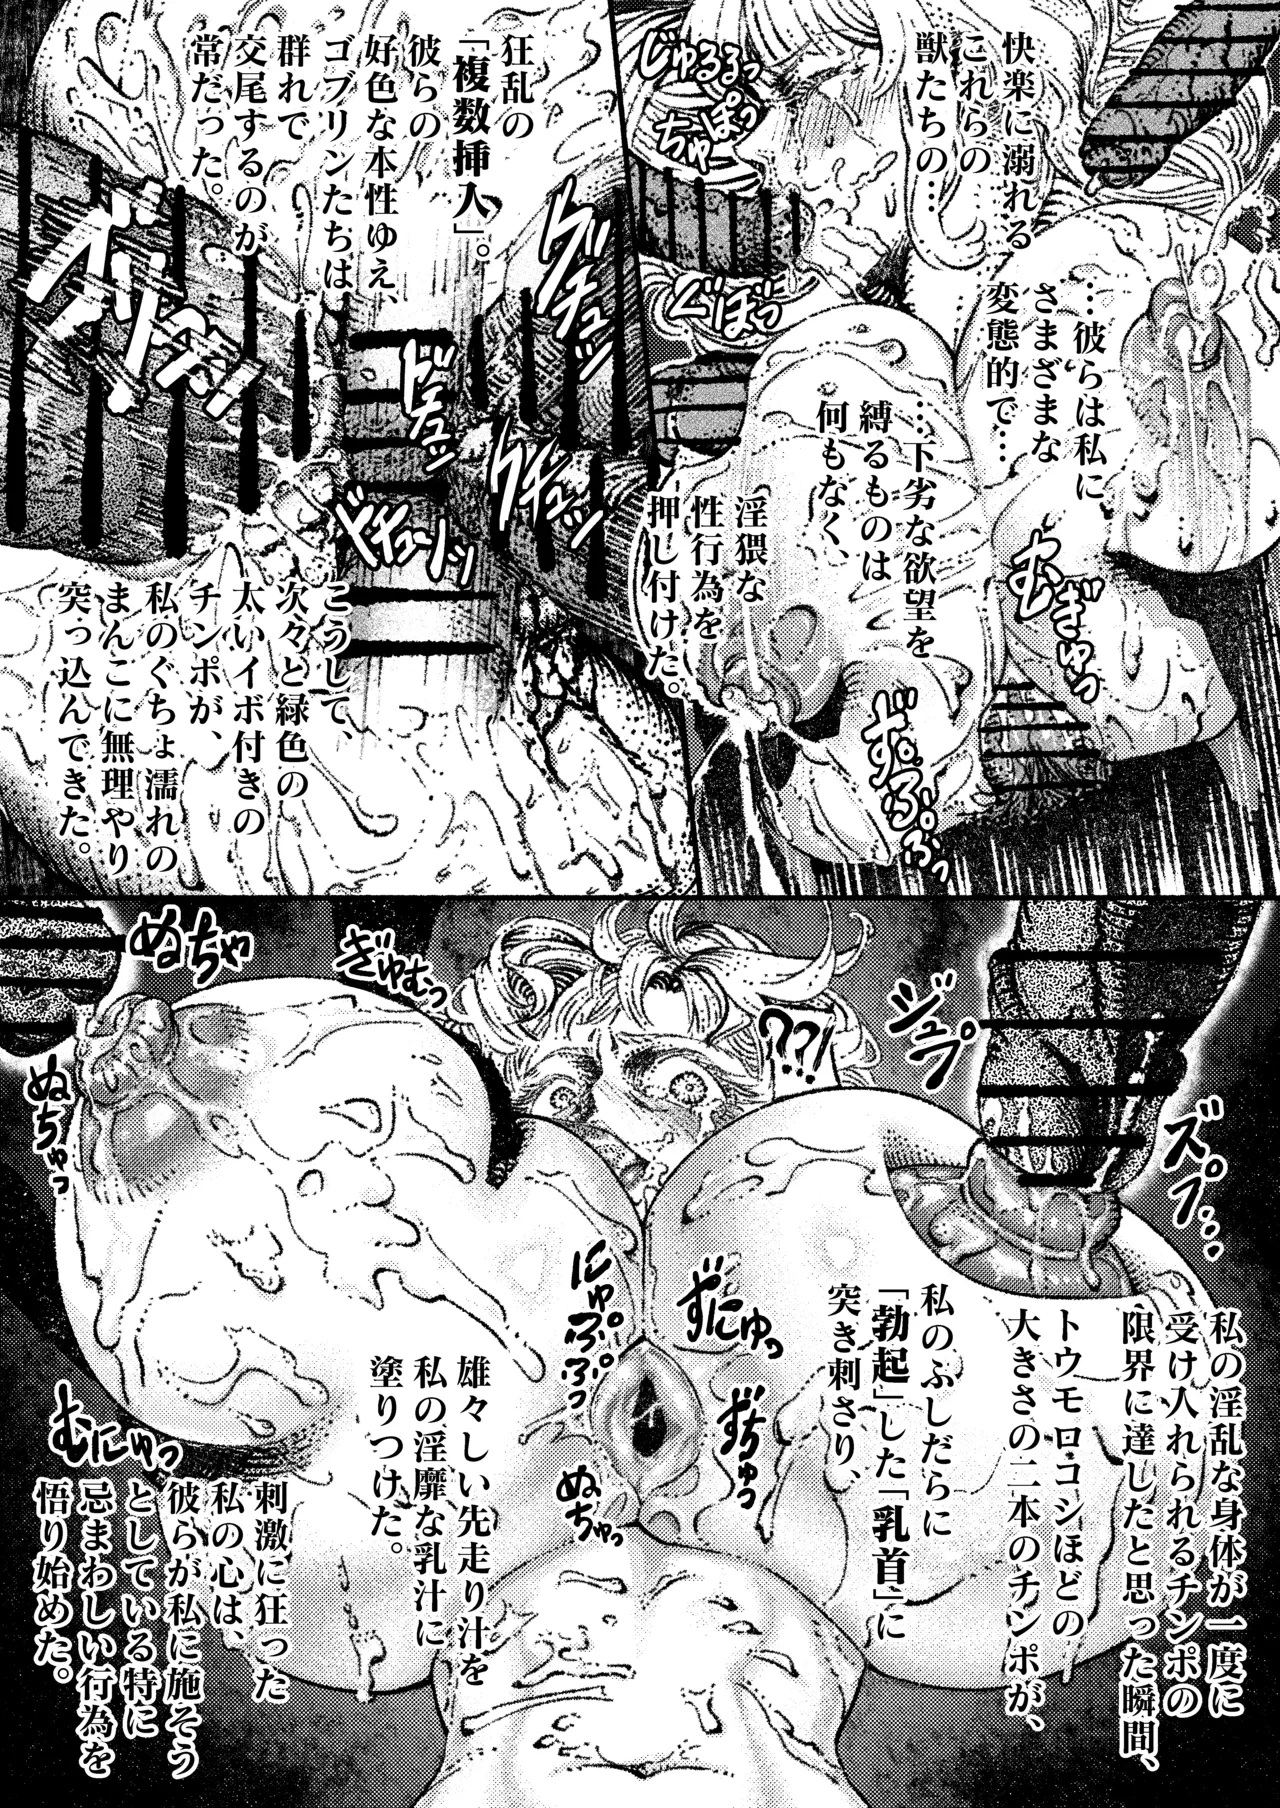 快楽に溺れる
これらの
獣たちの…
…彼らは私に
さまざまな
変態的で…
…下劣な欲望を
縛るものは
何もなく、
淫猥な
性行為を
押し付けた。
じゅるるっ
ちゅぽっ
ぐぼっ
むぎゅっ
ずぷぷっ
狂乱の
「複数挿入」。
彼らの
好色な本性ゆえ、
ゴブリンたちは
群れで
交尾するのが
常だった。
グチュッ
ドチュッ
グチュッ
ドチューッ
こうして、
次々と緑色の
太いイボ付きの
チンポが、
私のぐちょ濡れの
まんこに無理やり
突っ込んできた。
ジュプ
ズプ…
??!
ぎゅむっ
ぬちゃ
ぬちゅっ
私の淫乱な身体が一度に
受け入れられるチンポの
限界に達したと思った瞬間、
トウモロコシほどの
大きさの二本のチンポが、
私のふしだらに
「勃起」した「乳首」に
突き刺さり、
ずにゅっ
ずちゅっ
にゅぷぷっ
ぬちゅっ
雄々しい先走り汁を
私の淫靡な乳汁に
塗りつけた。
むにゅっ
刺激に狂った
私の心は、
彼らが私に施そう
としている特に
忌まわしい行為を
悟り始めた。